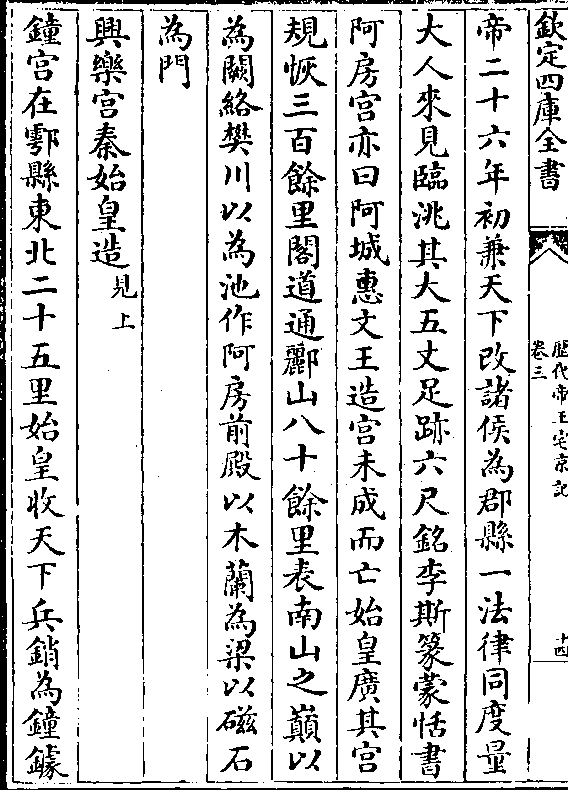 欽定四庫全書
歷代帝王宅京記
卷三
十四
帝二十六年初兼天下改諸侯為郡縣一法律同度量
大人來見臨洮其大五丈足跡六尺銘李斯篆蒙恬書
阿房宮亦曰阿城惠文王造宮未成而亡始皇廣其宮
規恢三百餘里閣道通酈山八十餘里表南山之巔以
為闕絡樊川以為池作阿房前殿以木蘭為梁以磁石
為門
興樂宮秦始皇造見上
鐘宮在鄠縣東北二十五里始皇收天下兵銷為鐘鐻